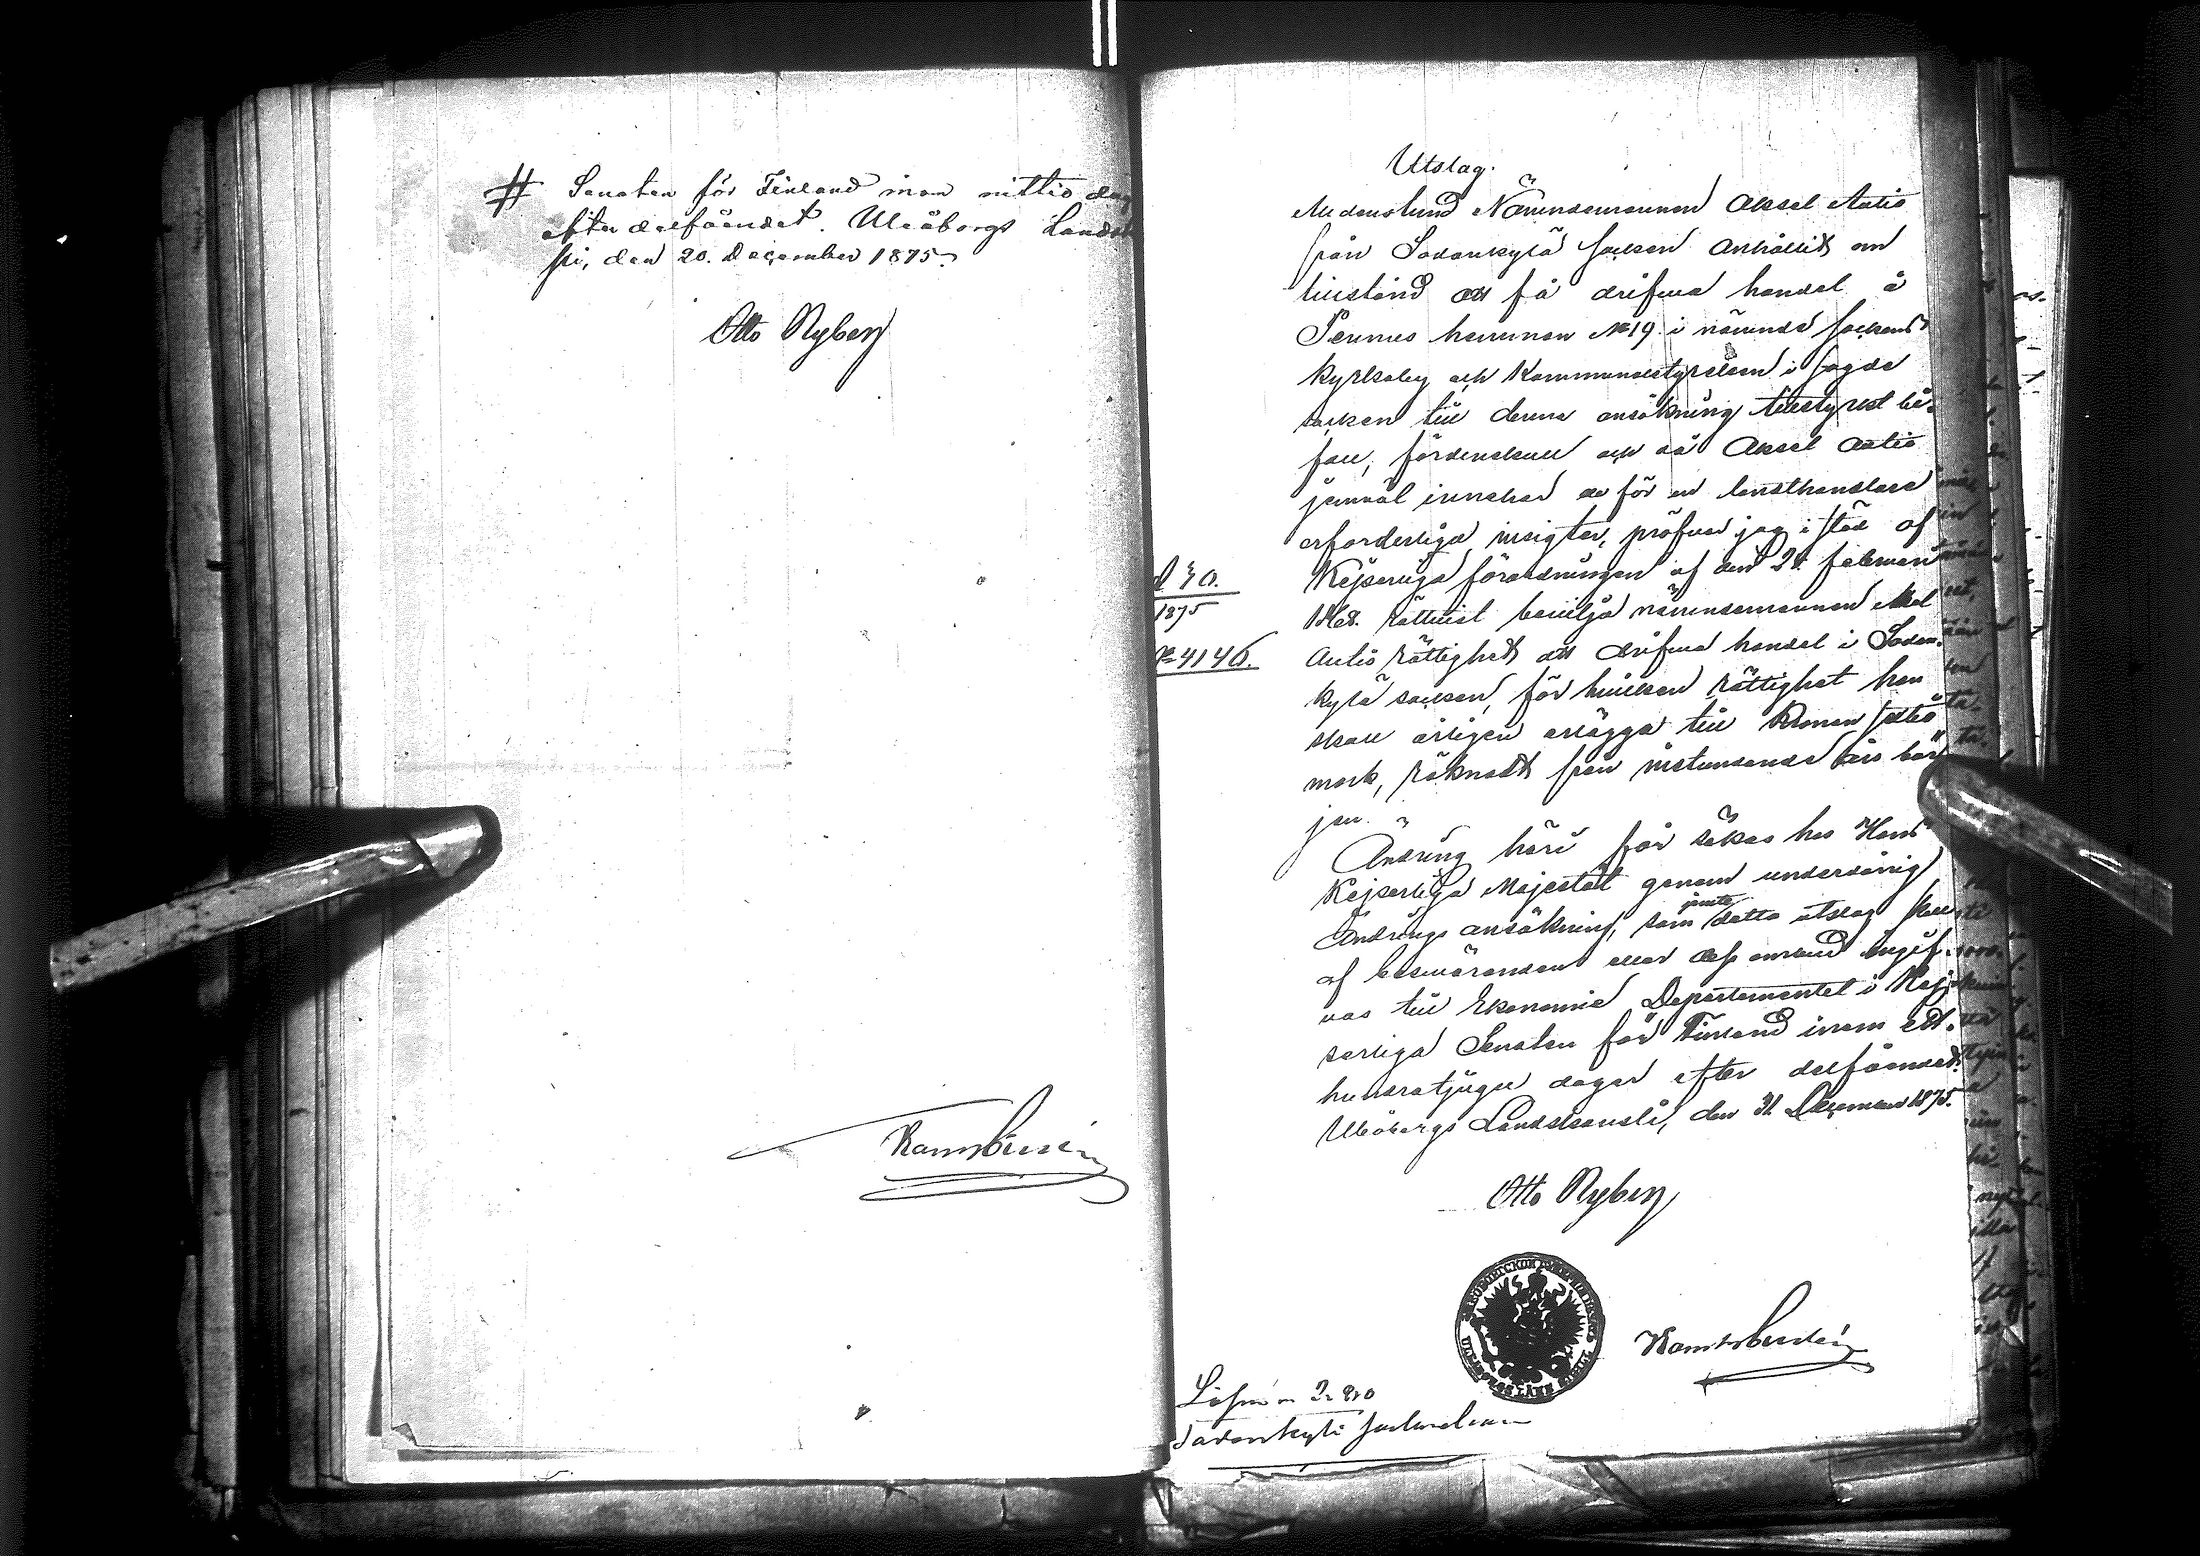 # Senaten för Finland inom nittio dag
efter delfåendet. Uleåborgs Landsk
sli, den 20. December 1875.
Otto Nyberg
Utslag.
Nämndemannen Aksel Autio
från Sodankylä socken anhållit om
tillstånd att få drifva handel å
hemman No 19 i nämnde sockens
Kyrkoby och Kommunalstyrelsen i sagde
socken till denna ansökning tillstyrkt bi-
fall, fördenskull och då Aksel Autio
jemväl innehar de för en landthandlare
erforderliga insigter, pröfvar jag i stöd af
Kejserliga förordningen af den 24 februari
1868. rättvist bevilja nämndemannen Aksel
Autio rättighet att drifva handel i Sodan-
kylä socken, för hvilken rättighet han
skall årligen erlägga till Kronan
mark, räknadt från instundande års bör
jan.
Ändring häri får sökas hos Hans
Kejserliga Majestät genom underdånig
Ändrings ansökning, som jemte detta utslag skall
af besväranden eller dess ombud ingif-
vas till Ekonomie Departementet i Kej-
serliga Senaten för Finland inom ett-
hundratjugu dagar efter delfåendet.
Uleåborgs Landskansli, den 31 December 1875.
Otto Nyberg
1875
No 4146.
ULEÅBORGS LÄNS
Lösen
Sodankylä